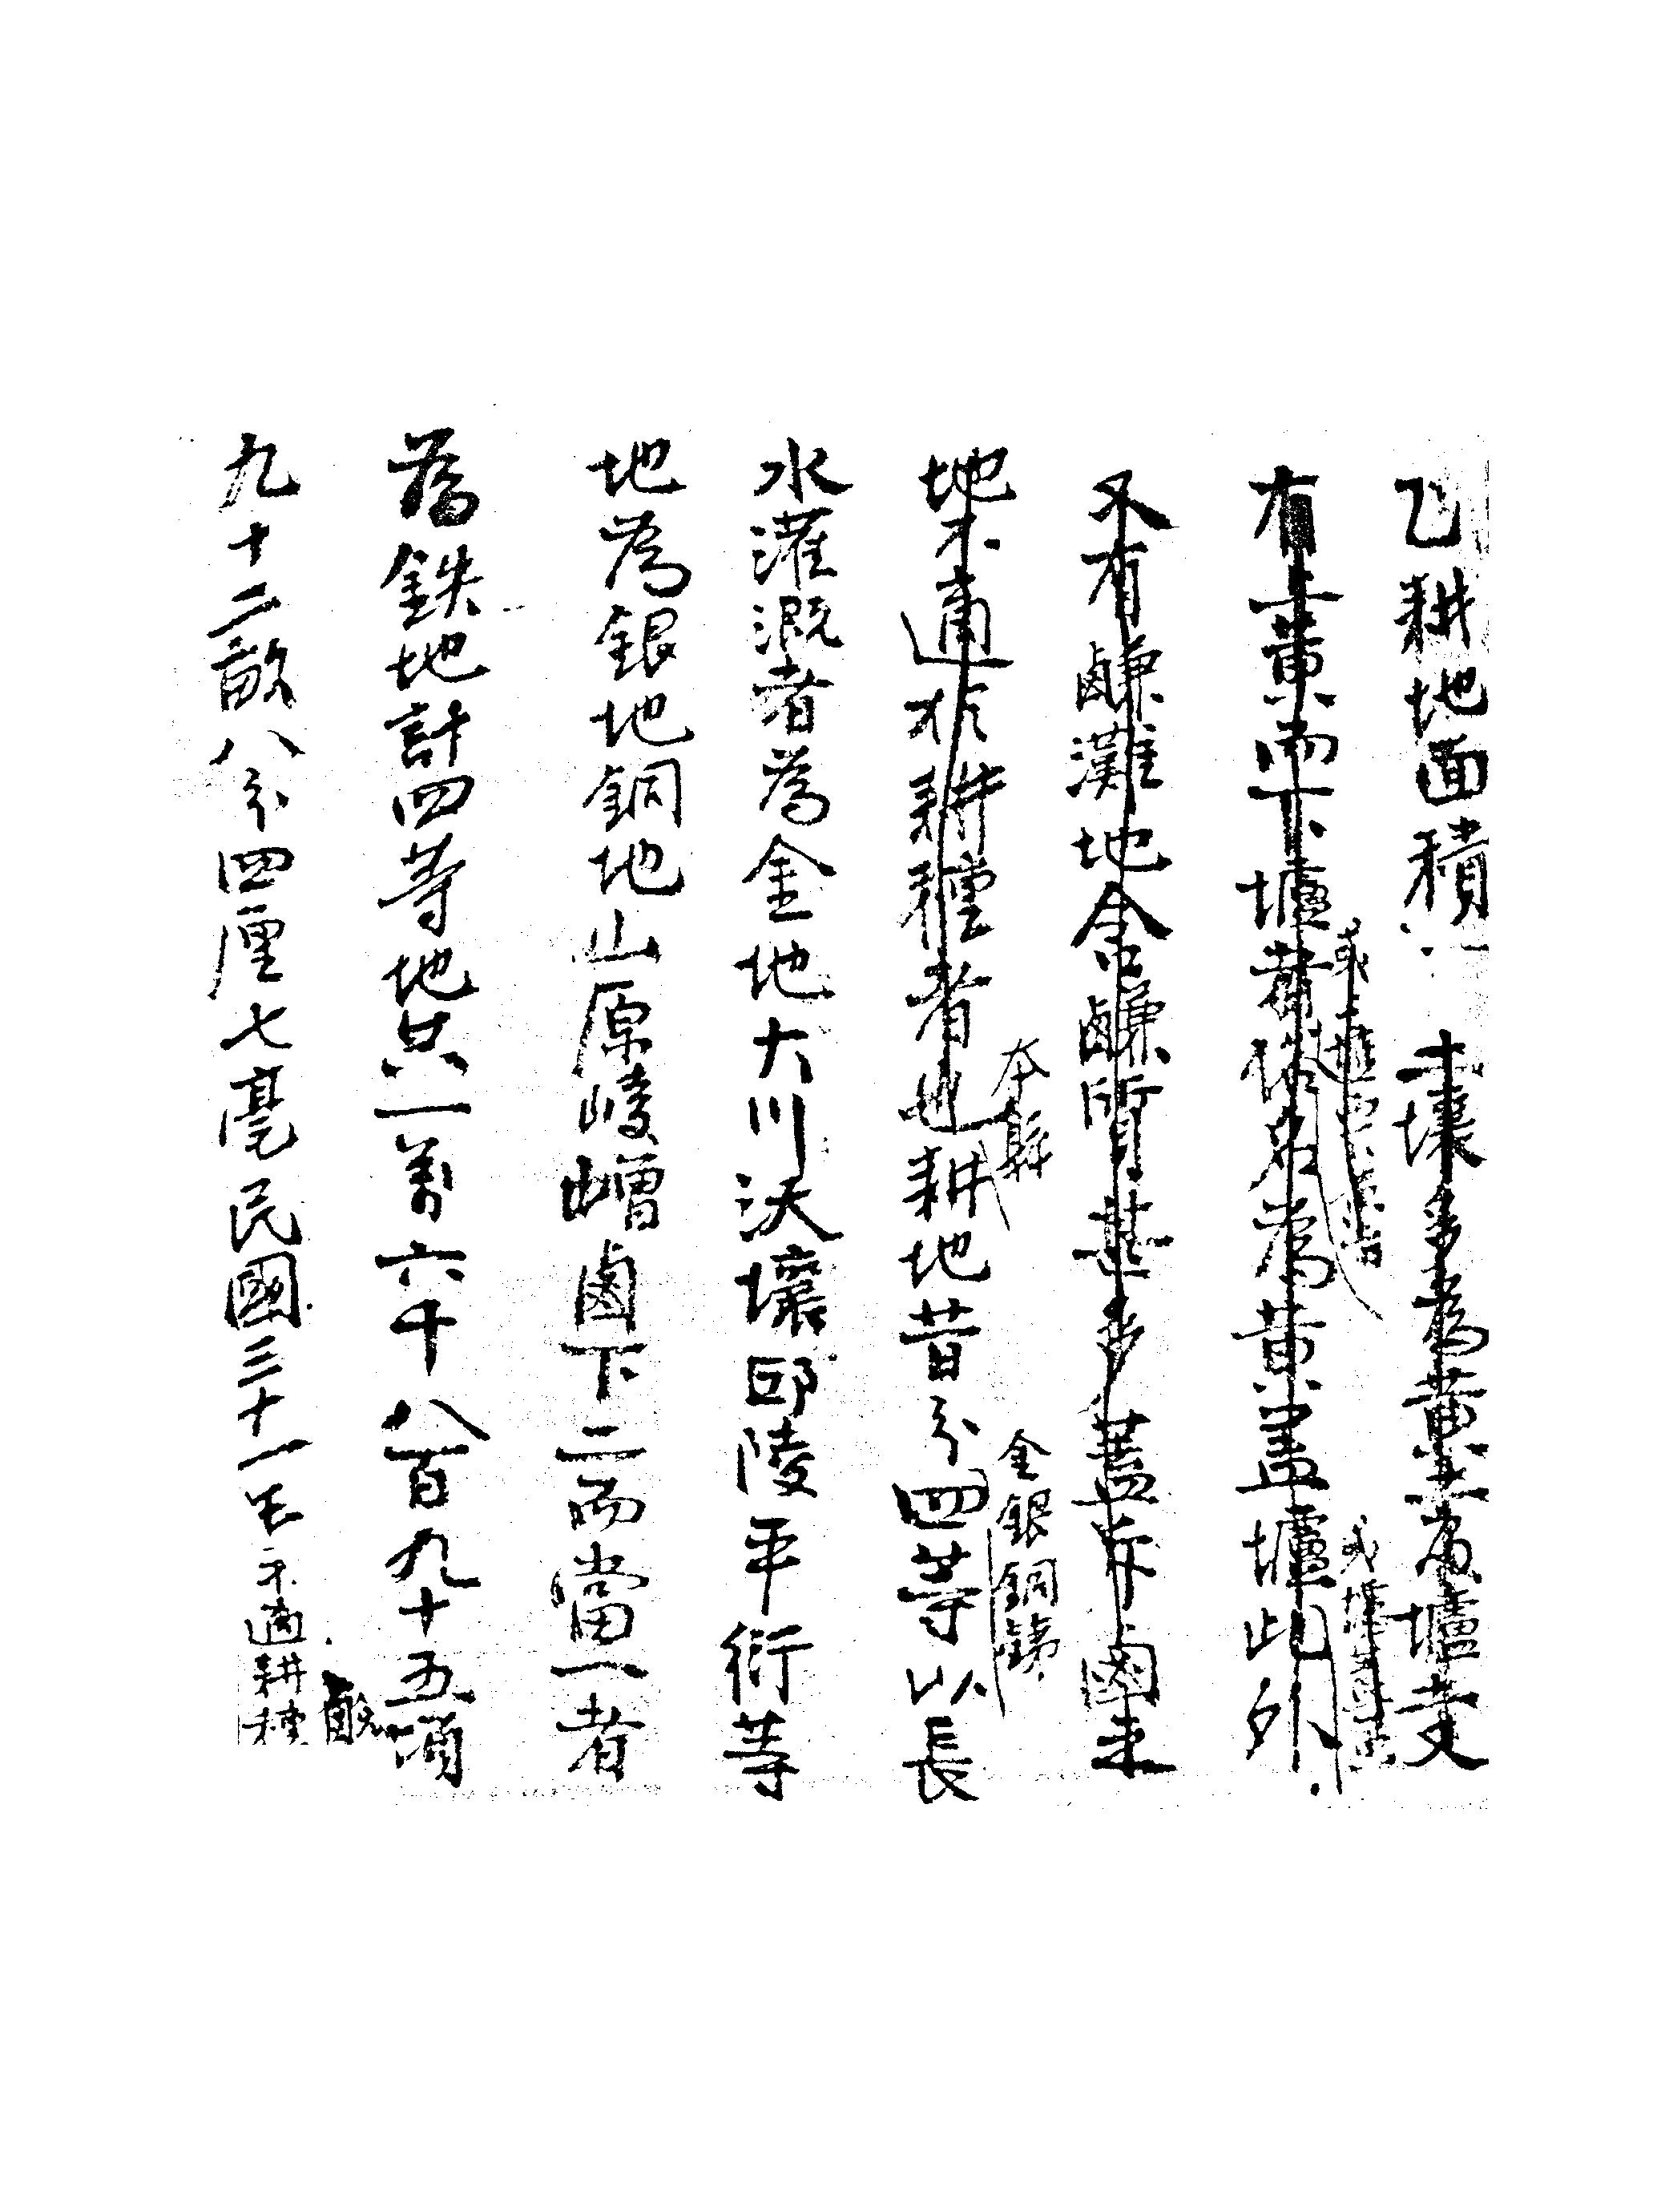 已耕地面積 土壤多為黃土有壚土
有上黃而下壚者俗名為黃蓋壚此外
又有鹻灘地含鹻質甚多蓋斥鹵之
地不適於耕種者也耕地昔分四等以長
本縣
金銀銅銕
水灌溉者為金地大川沃壤邱陵平衍等
地為銀地銅地山原崚嶒鹵下二而當一者
為鉄地計四等地共一萬六千八百九十五頃
九十二畝八分四厘七毫民國三十一年不適耕種